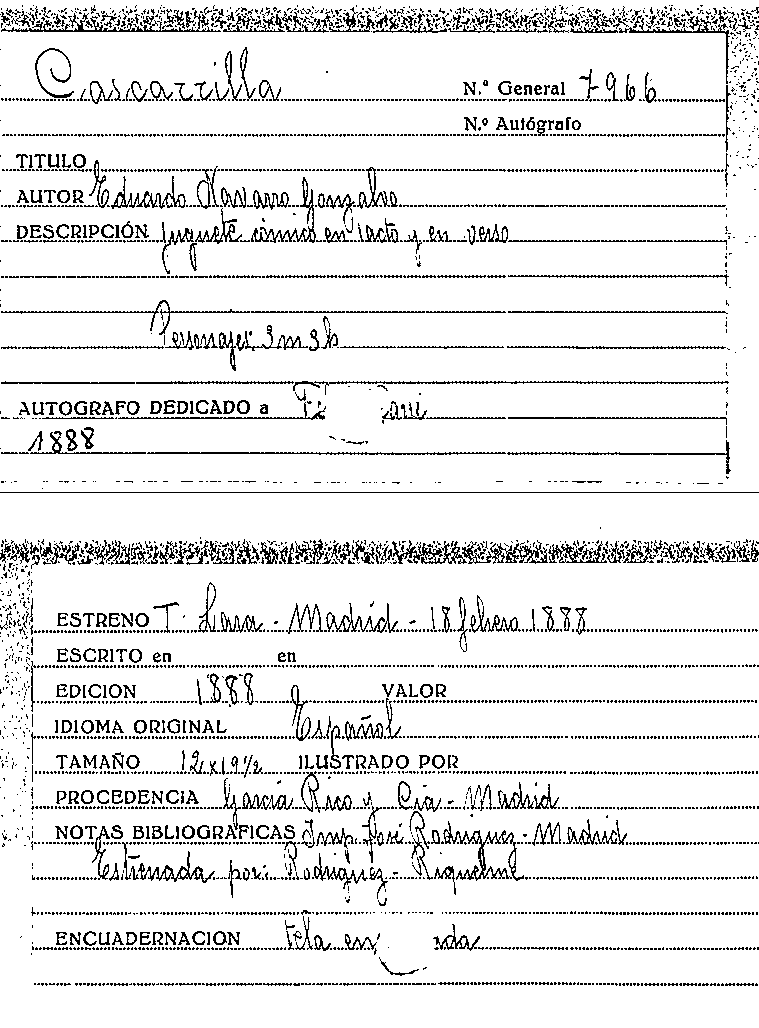 Cascarrilla
N.º General 7966
N.º Autógrafo
TITULO
AUTOR Eduardo Navarro Gonzalvo
DESCRIPCIÓN juguete cómico en 1 acto y en verso
Personajes: 3m 3h
AUTOGRAFO DEDICADO a
1888
ESTRENO T. Lara - Madrid - 18 febrero 1888
ESCRITO en en
EDICION 1888 VALOR
IDIOMA ORIGINAL Español
TAMAÑO 12 x 19 1/2 ILUSTRADO POR
PROCEDENCIA García Rico y Cia - Madrid
NOTAS BIBLIOGRAFICAS Imp. José Rodriguez - Madrid
Estrenada por: Rodriguez - Riquelme
ENCUADERNACION tela